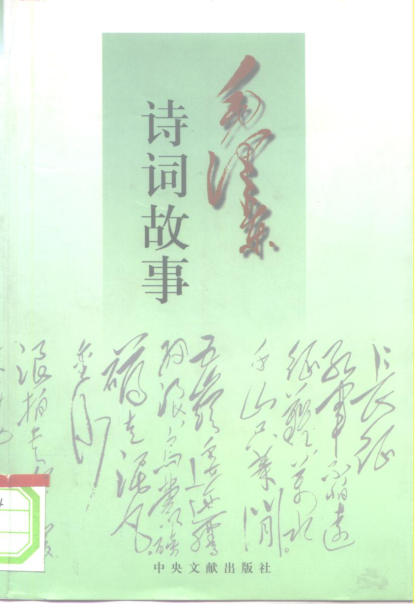 毛泽东
诗词故事
长征
红军不怕远
征难万水
千山只等闲
五岭逶迤腾
细浪乌蒙磅
礴走泥丸
金沙
浪拍
中央文献出版社